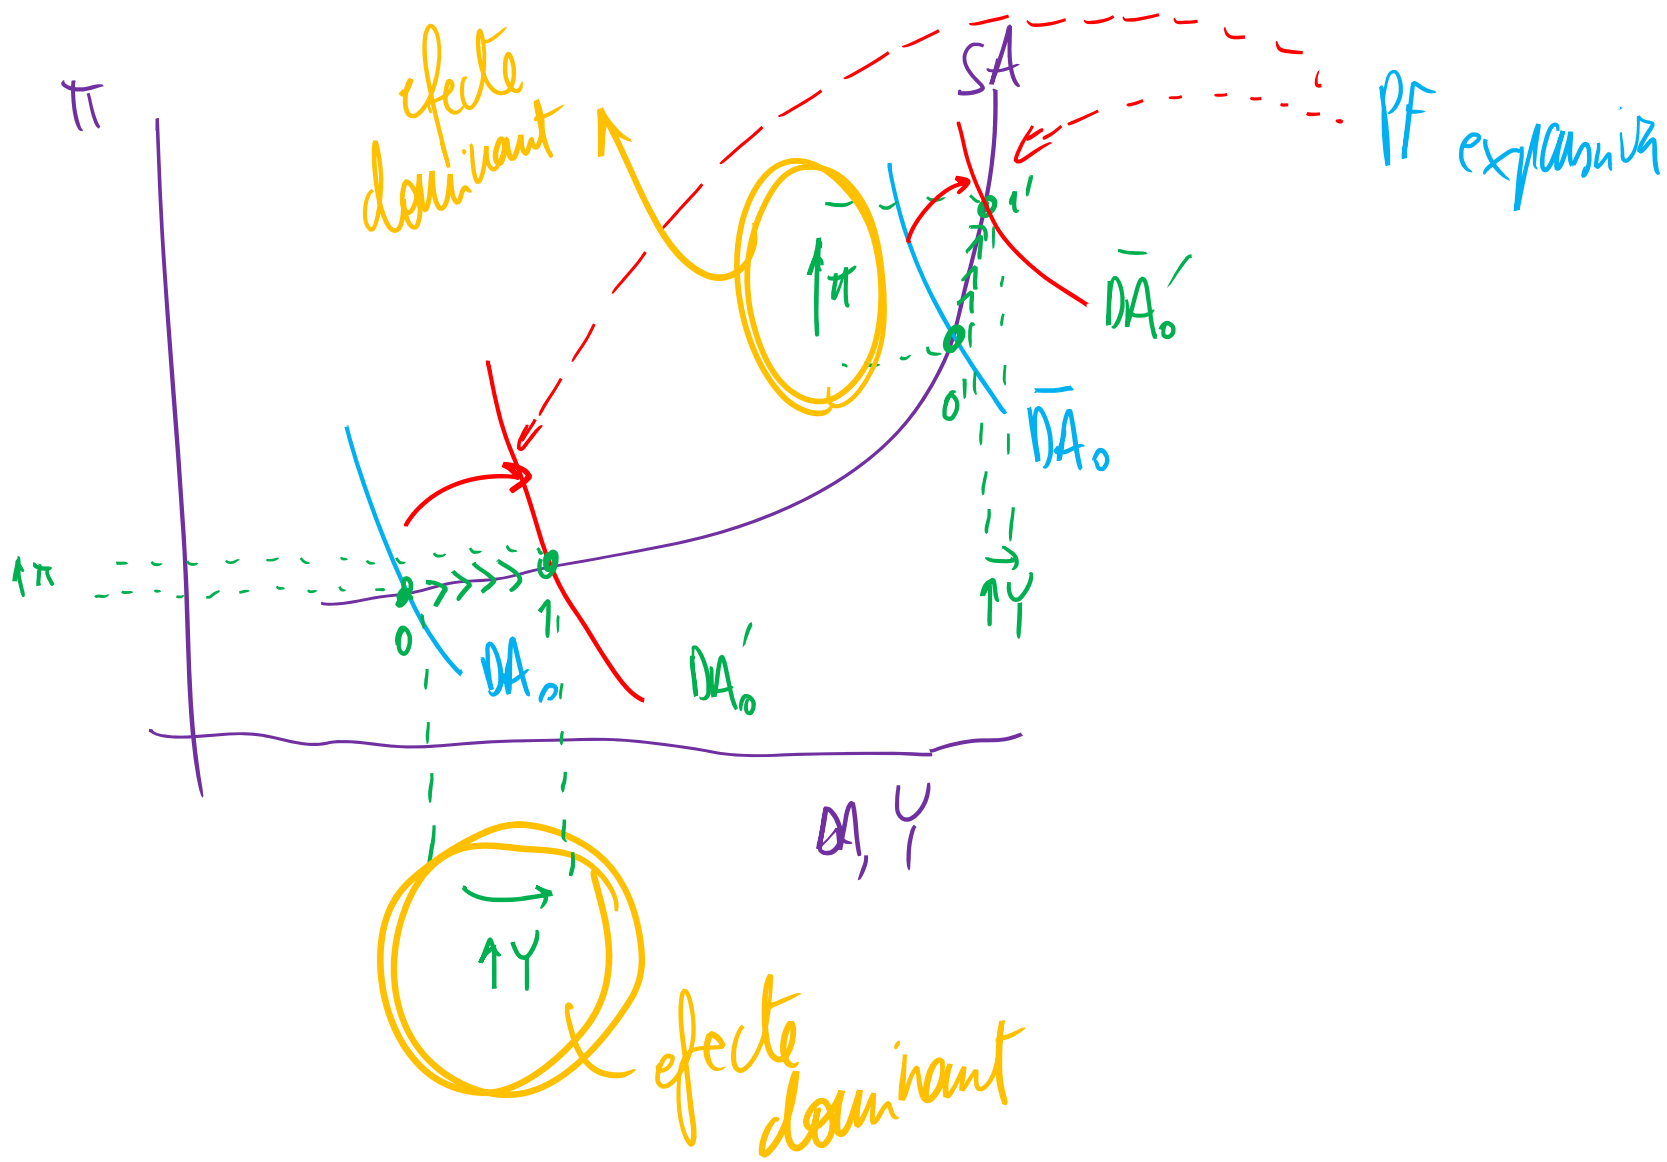 efecte
dominant
SA
π
PF expansiva
1'
↑π
D̅A̅₀'
0'
D̅A̅₀
↑π
↑Y
0
1
DA₀
DA₀'
DA, Y
↑Y
efecte
dominant